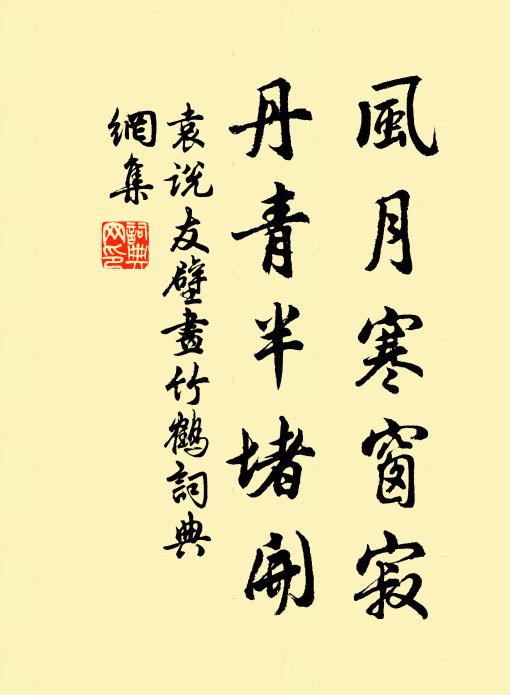 風月寒窗寂
丹青半堵開
袁説友壁畫竹鶴詞典
網集
詞典
网印